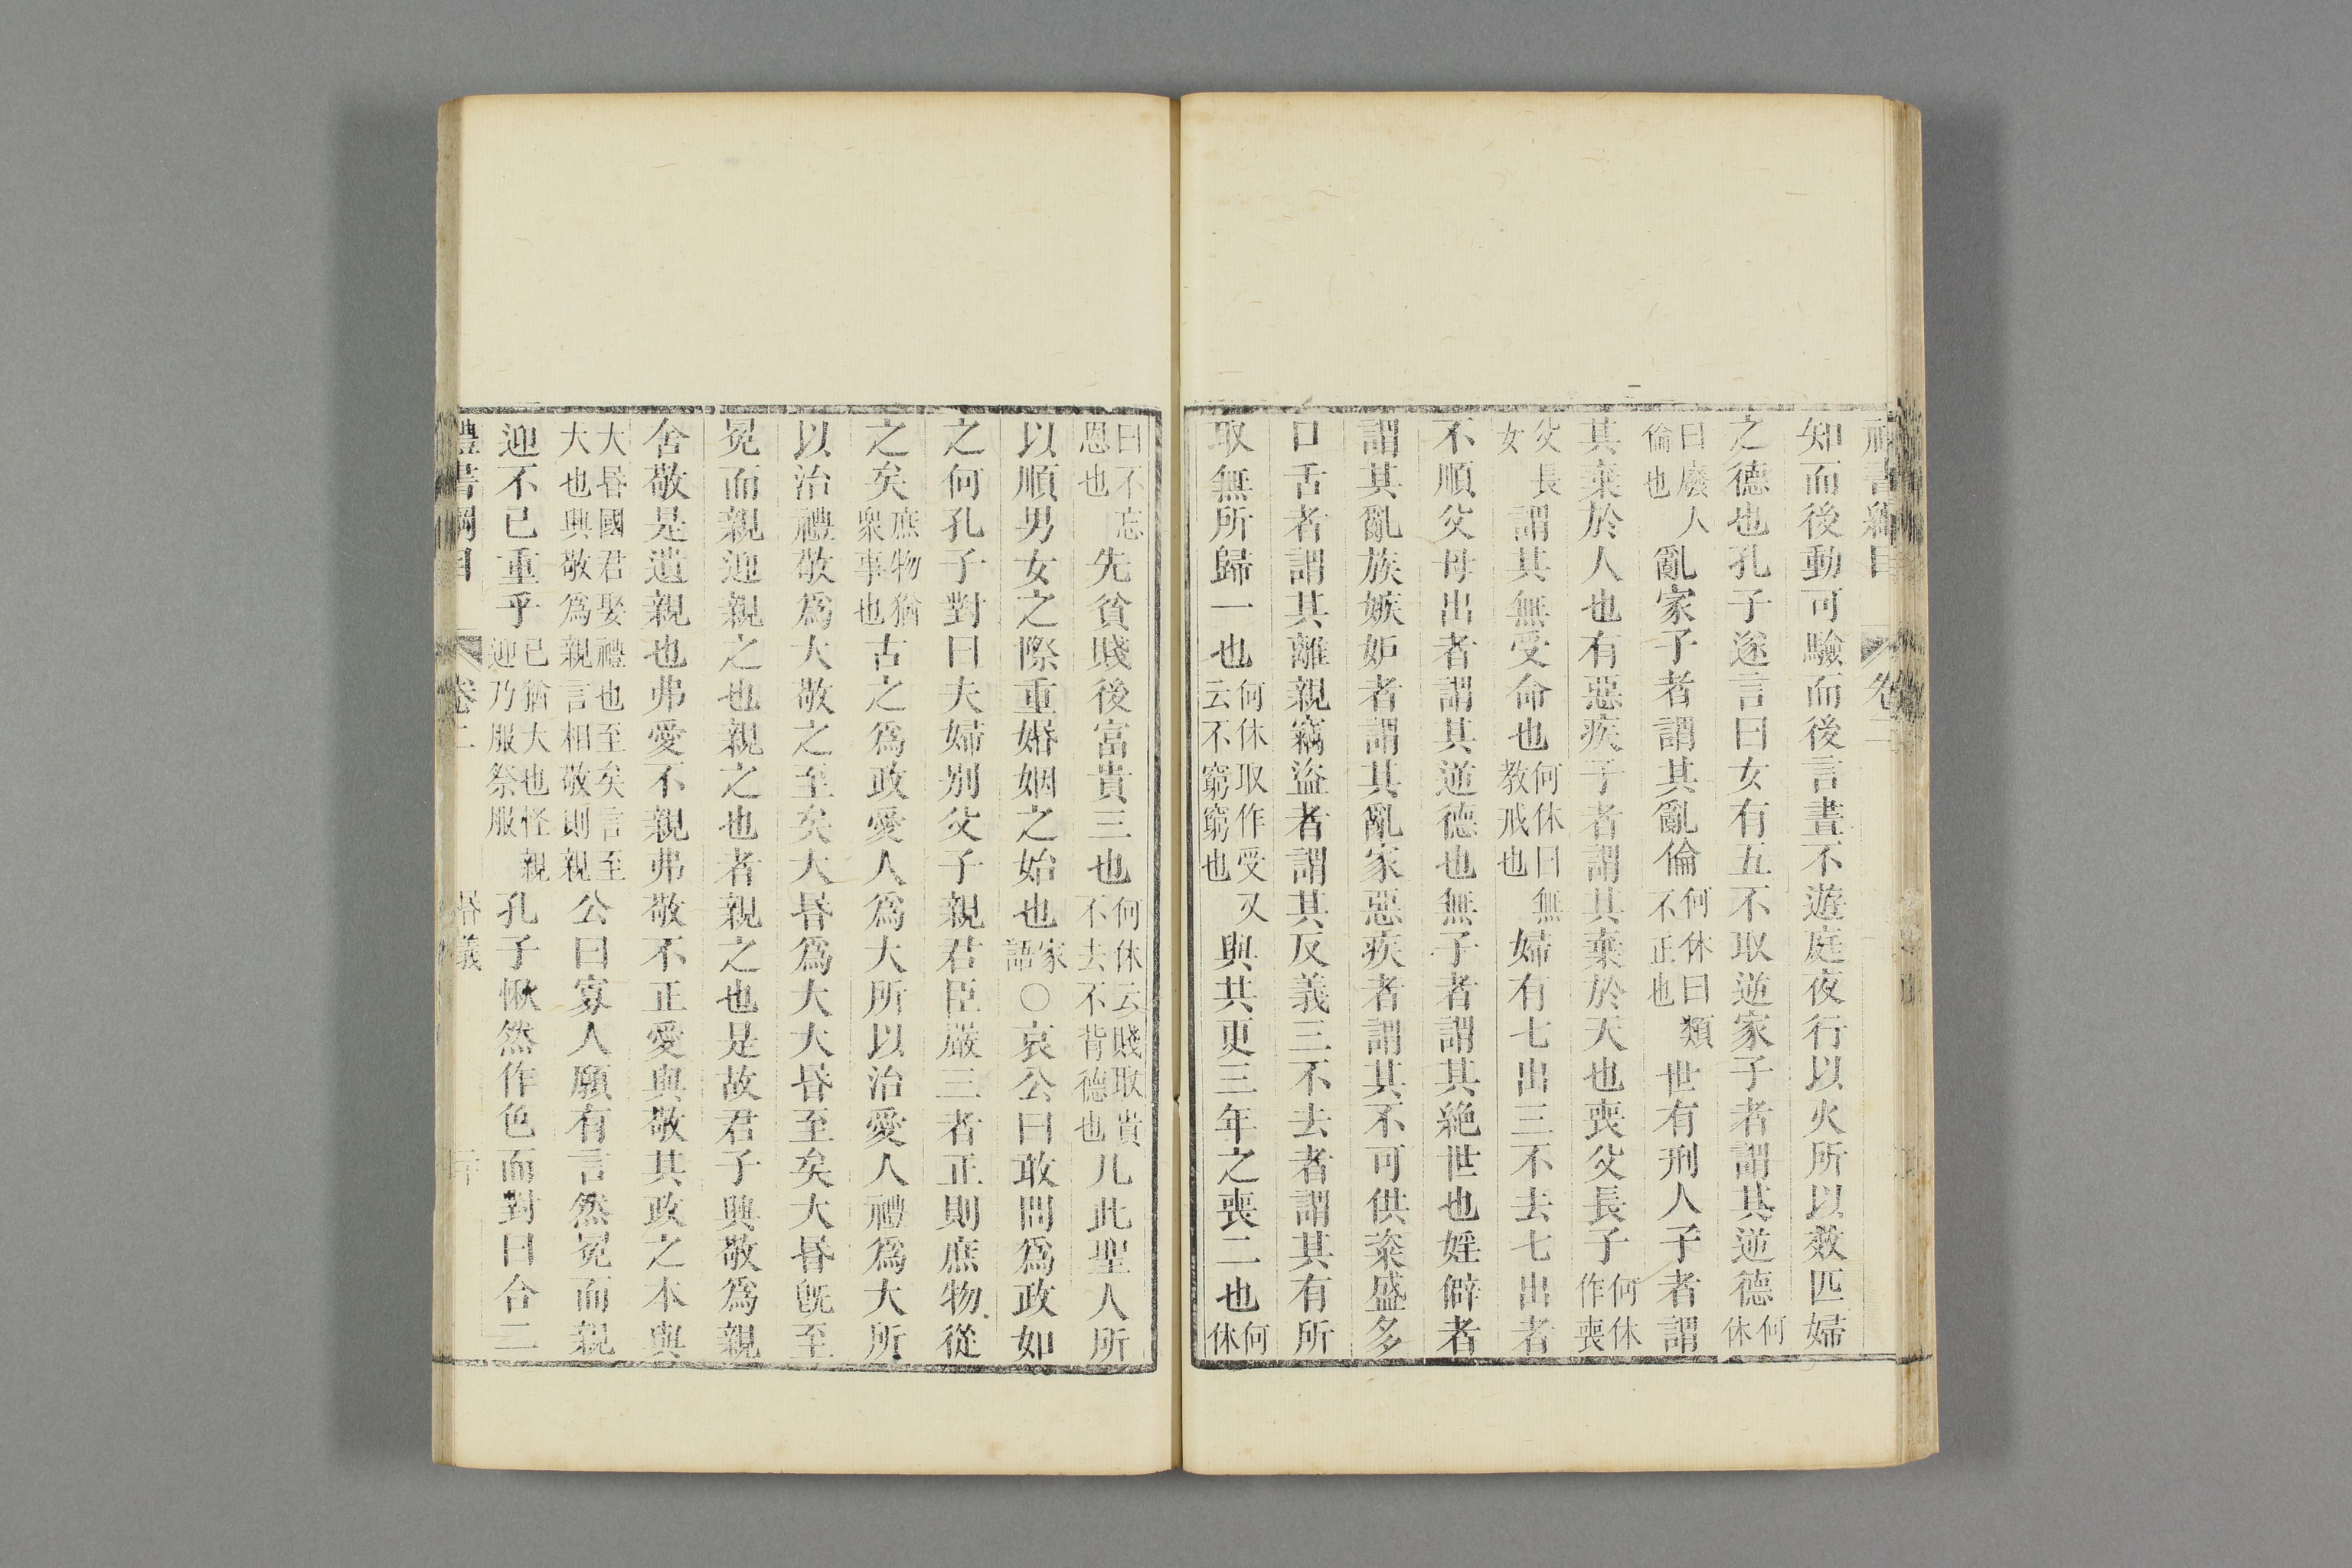 禮書綱目 卷二
知而後動可驗而後言晝不遊庭夜行以火所以效匹婦
之德也孔子遂言曰女有五不取逆家子者謂其逆德何休
曰廢人倫也亂家子者謂其亂倫何休曰類不正也世有刑人子者謂
其棄於人也有惡疾子者謂其棄於天也喪父長子何休作喪
父長女謂其無受命也何休曰無教戒也婦有七出三不去七出者
不順父母出者謂其逆德也無子者謂其絶世也婬僻者
謂其亂族嫉妒者謂其亂家惡疾者謂其不可供粢盛多
口舌者謂其離親竊盜者謂其反義三不去者謂其有所
取無所歸一也何休取作受又云不窮窮也與共更三年之喪二也何休
曰不忘恩也先貧賤後富貴三也何休云賤取貴不去不背德也凡此聖人所
以順男女之際重婚姻之始也家語○哀公曰敢問爲政如
之何孔子對曰夫婦別父子親君臣嚴三者正則庶物從
之矣庶物猶衆事也古之爲政愛人爲大所以治愛人禮爲大所
以治禮敬爲大敬之至矣大昏爲大大昏至矣大昏旣至
冕而親迎親之也親之也者親之也是故君子興敬爲親
舍敬是遺親也弗愛不親弗敬不正愛與敬其政之本與
大昏國君娶禮也至矣言至大也興敬爲親言相敬則親公曰寡人願有言然冕而親
迎不已重乎已猶大也怪親迎乃服祭服孔子愀然作色而對曰合二
禮書綱目 卷二 昏義